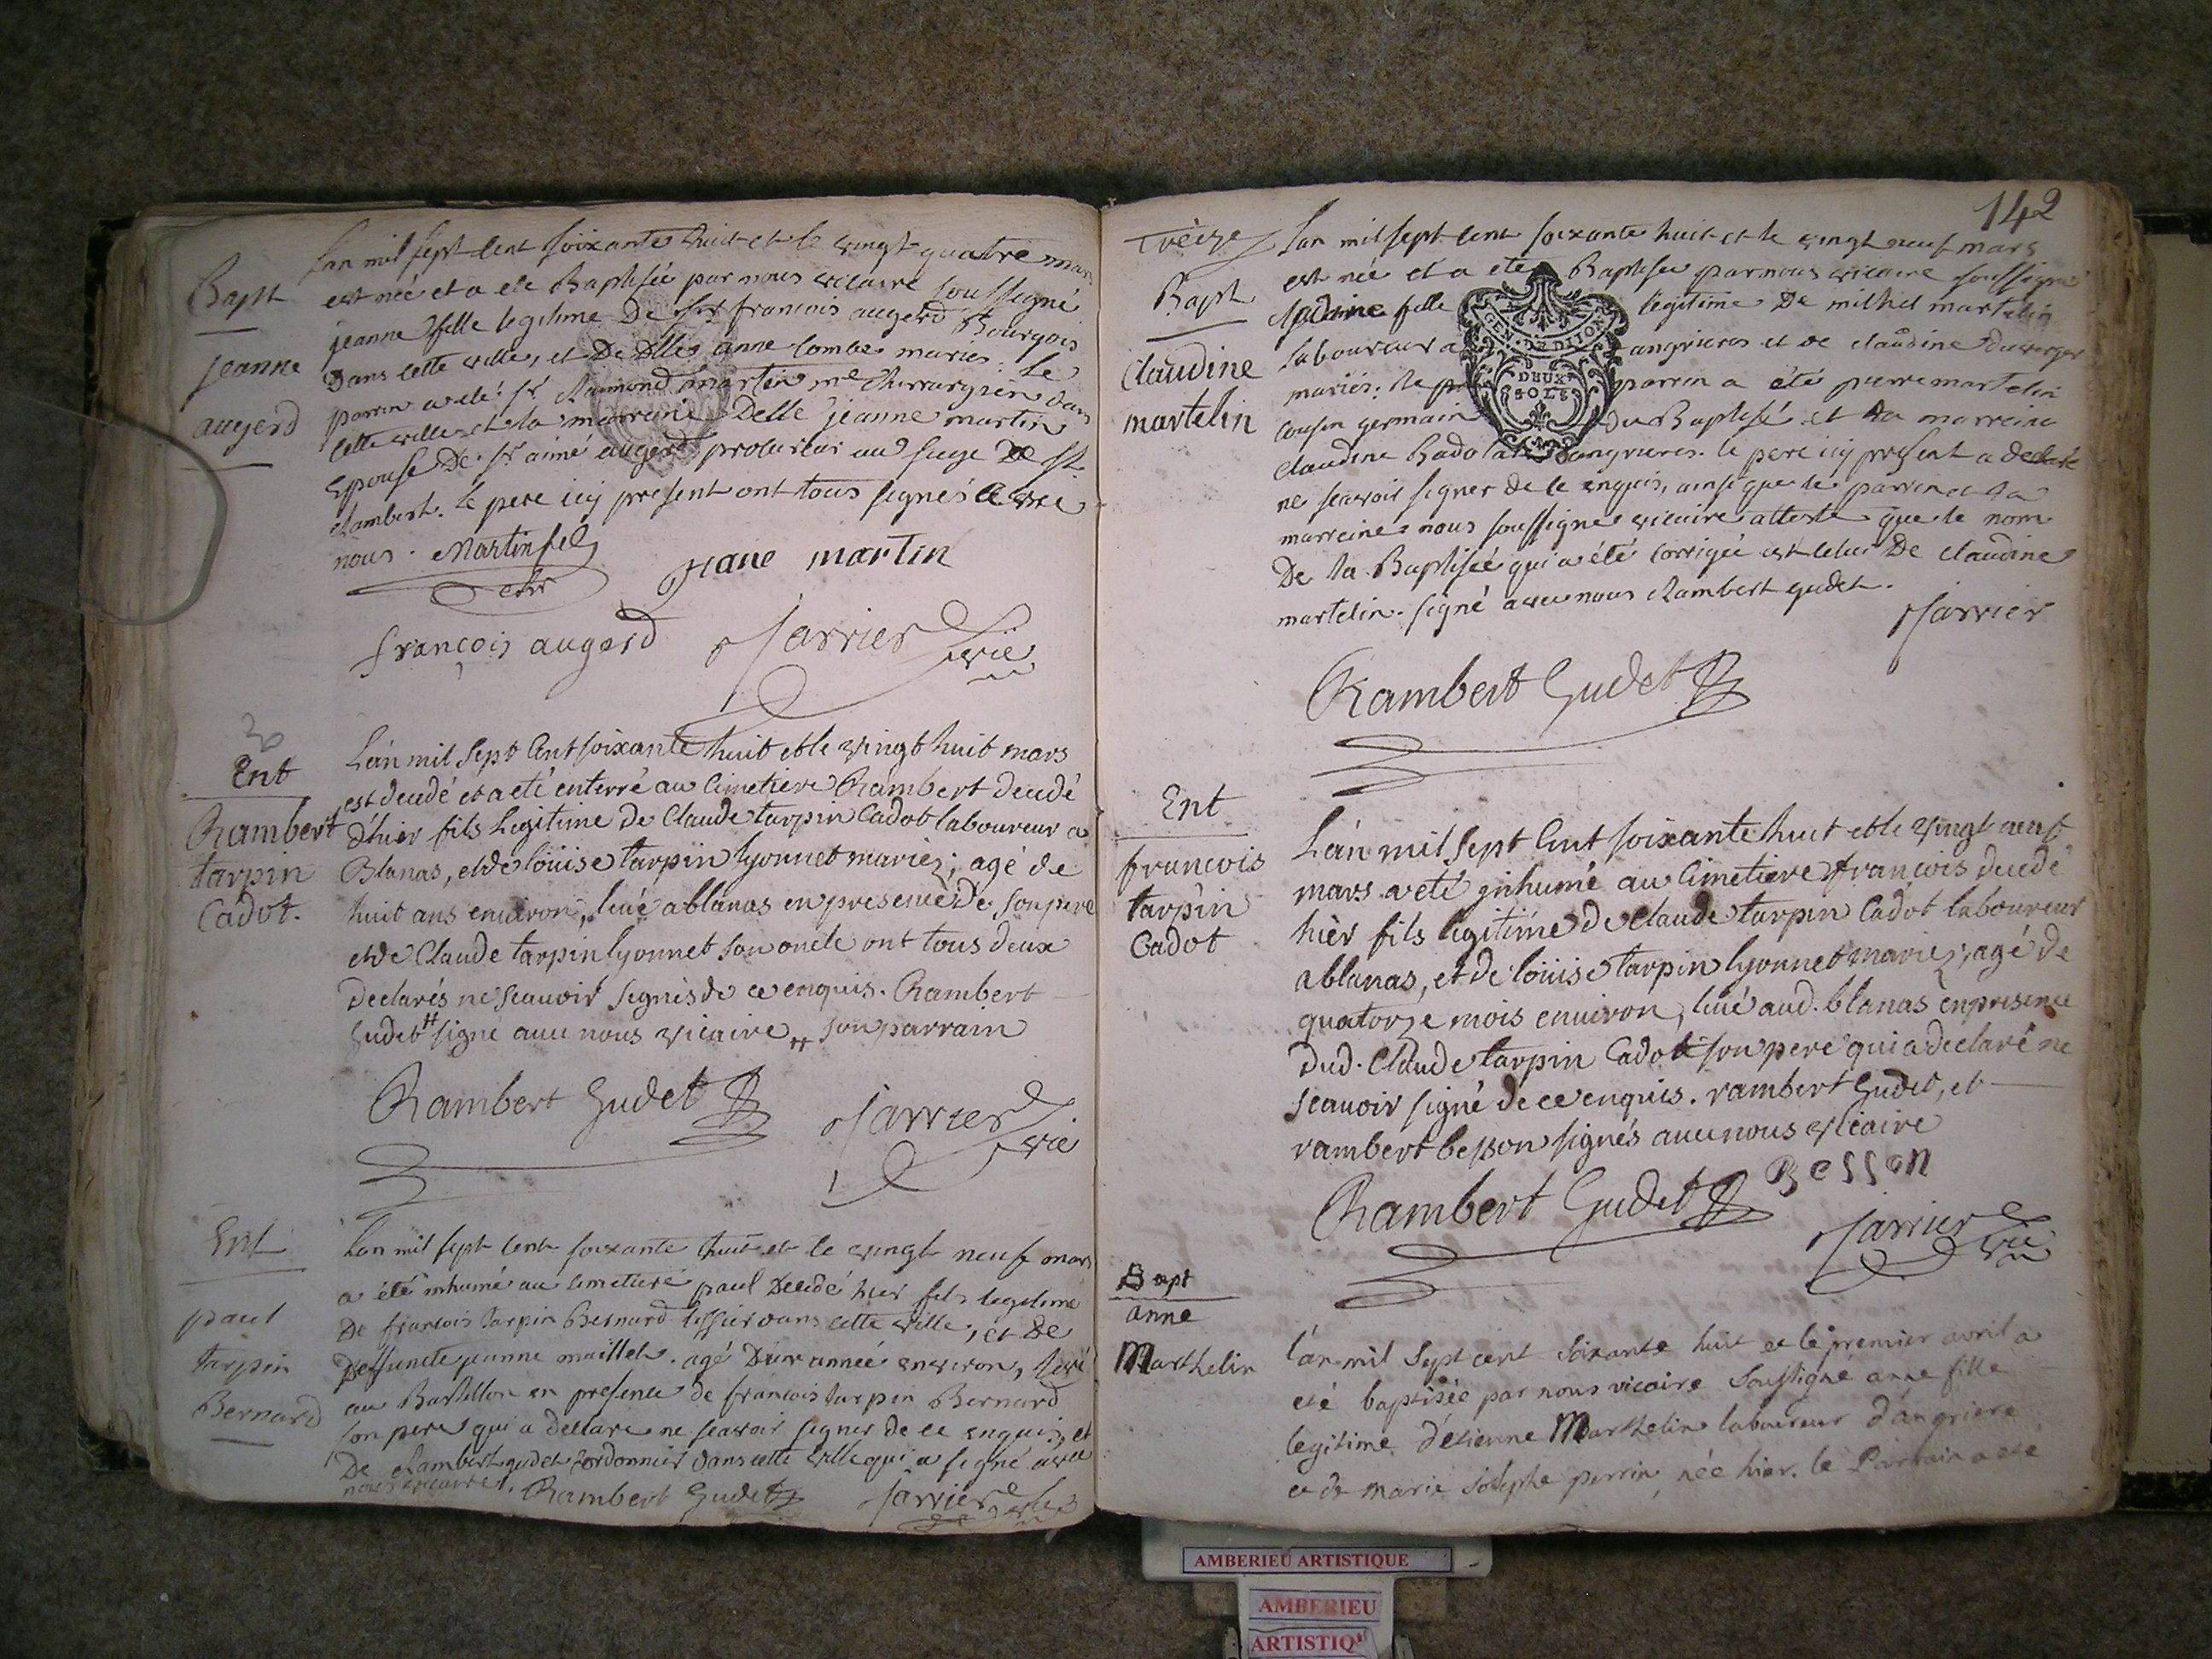 Bapt
jeanne
augerd
Lan mil sept cent soixante huit et le vingt quatre mars
est née et a ete Baptisée par nous vicaire soussigné
jeanne fille legitime De sr francois augerd Bourgois
Dans cette ville, et De Dlle anne Combe mariés. Le
parrin a eté sr Raimond martin me Chirurgien dans
cette ville et la marreine Delle jeanne martin
Epouse De sr aimé augerd procureur au siege De St
Rambert. le pere icy present ont tous signés avec
nous. Martin fils
chir
jane martin
françois augerd
Jarrier
vic
Ent
Rambert
tarpin
Cadot.
L'an mil sept Cent soixante huit et le vingt huit mars
est decedé et a eté enterré au Cimetiere Rambert decedé
d'hier fils Legitime de Claude tarpin Cadot laboureur a
Blanas, et de loüise tarpin lyonnet mariez; agé de
huit ans environ, levé a blanas en presence de son pere
et de Claude tarpin lyonnet son oncle ont tous deux
declarés ne scauoir signés de ce enquis. Rambert
Gudet # signé avec nous vicaire # son parrain
Rambert Gudet
Jarrier
vic
Ent
paul
tarpin
Bernard
Lan mil sept cent soixante huit et le vingt neuf mars
a été inhumé au cimetiere paul Decedé hier fils legitime
De francois tarpin Bernard tissier dans cette ville, et De
Deffuncte jeanne maillet. agé D'une année environ, levé
au Bastillon en presence de francois tarpin Bernard
son pere qui a declare ne scavoir signer de ce enquis, et
De Rambert gudet cordonnier dans cette ville qui a signé avec
nous vicaire.
Rambert Gudet
Jarrier
142
Treize
Bapt
Claudine
martelin
Lan mil sept cent soixante huit et le vingt neuf mars
est née et a ete Baptisée par nous vicaire soussigné
fille legitime De michel martelin
laboureur a angrieres et de claudine duverger
mariés. le parrin a été pierre martelin
cousin germain du Baptisé et la marreine
claudine Badola angrieres. le pere icy present a declaré
ne scavoir signer de ce enquis, ainsi que le parrin et la
marreine nous soussigné vicaire atteste que le nom
De la Baptisée qui a été corrigée est celui De Claudine
martelin. signé avec nous Rambert gudet.
Jarrier
Rambert Gudet
GEN. DE DIJON
DEUX
SOLS
Ent
francois
tarpin
Cadot
L'an mil sept Cent soixante huit et le vingt neuf
mars a eté inhumé au Cimetiere francois decedé
hier fils legitime de Claude tarpin Cadot laboureur
a blanas, et de loüise tarpin lyonnet mariez; agé de
quatorze mois environ, levé aud. blanas en presence
dud. Claude tarpin Cadot son pere qui a declaré ne
scauoir signé de ce enquis. rambert Gudet, et
rambert besson signés avec nous vicaire
Rambert Gudet
Besson
Jarrier
vic
Bapt
anne
Marthelin
l'an mil sept cent soixante huit et le premier avril a
eté baptisée par nous vicaire soussigné anne fille
legitime d'etienne Marthelin laboureur d'angriere
et de marie josephe perrin, née hier. le Parrain a eté
AMBERIEU ARTISTIQUE
AMBERIEU
ARTISTIQ